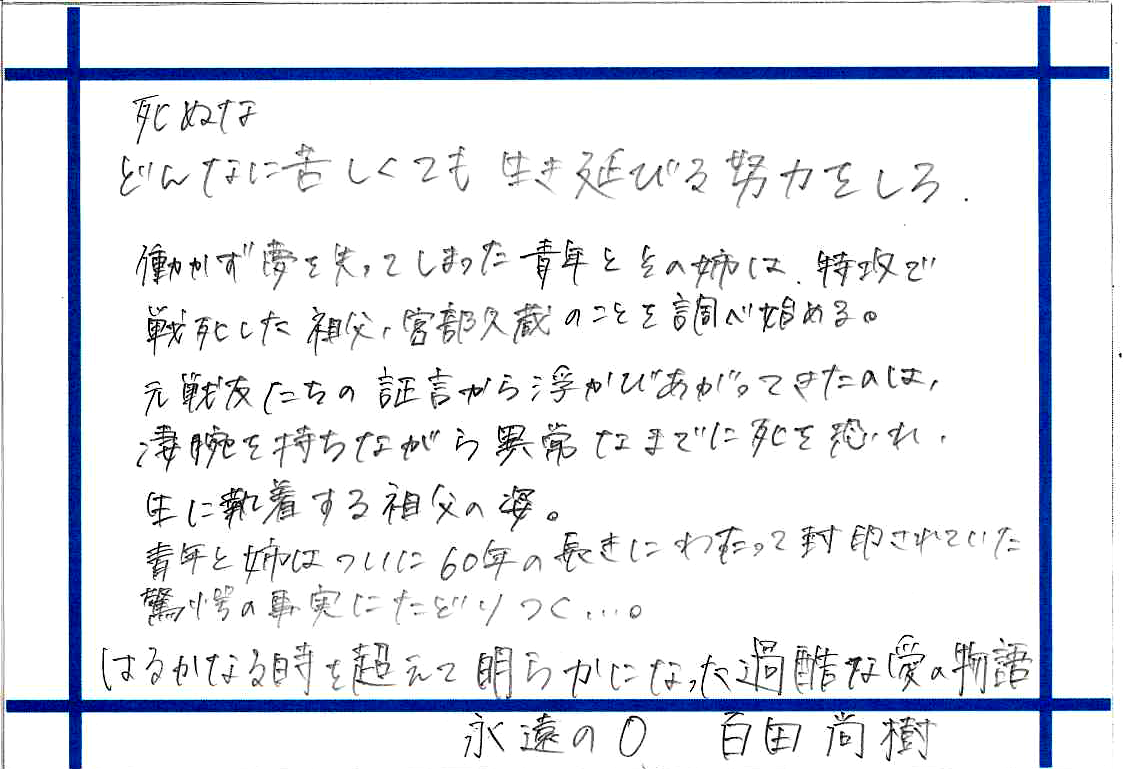 死ぬな
どんなに苦しくても生き延びる努力をしろ.
働かず夢を失ってしまった青年とその姉は、特攻で
戦死した祖父、宮部久蔵のことを調べ始める。
元戦友たちの証言から浮かびあがってきたのは、
凄腕を持ちながら異常なまでに死を恐れ、
生に執着する祖父の姿。
青年と姉はついに60年の長きにわたって封印されていた
驚愕の事実にたどりつく…。
はるかなる時を超えて明らかになった過酷な愛の物語
永遠の0 百田尚樹